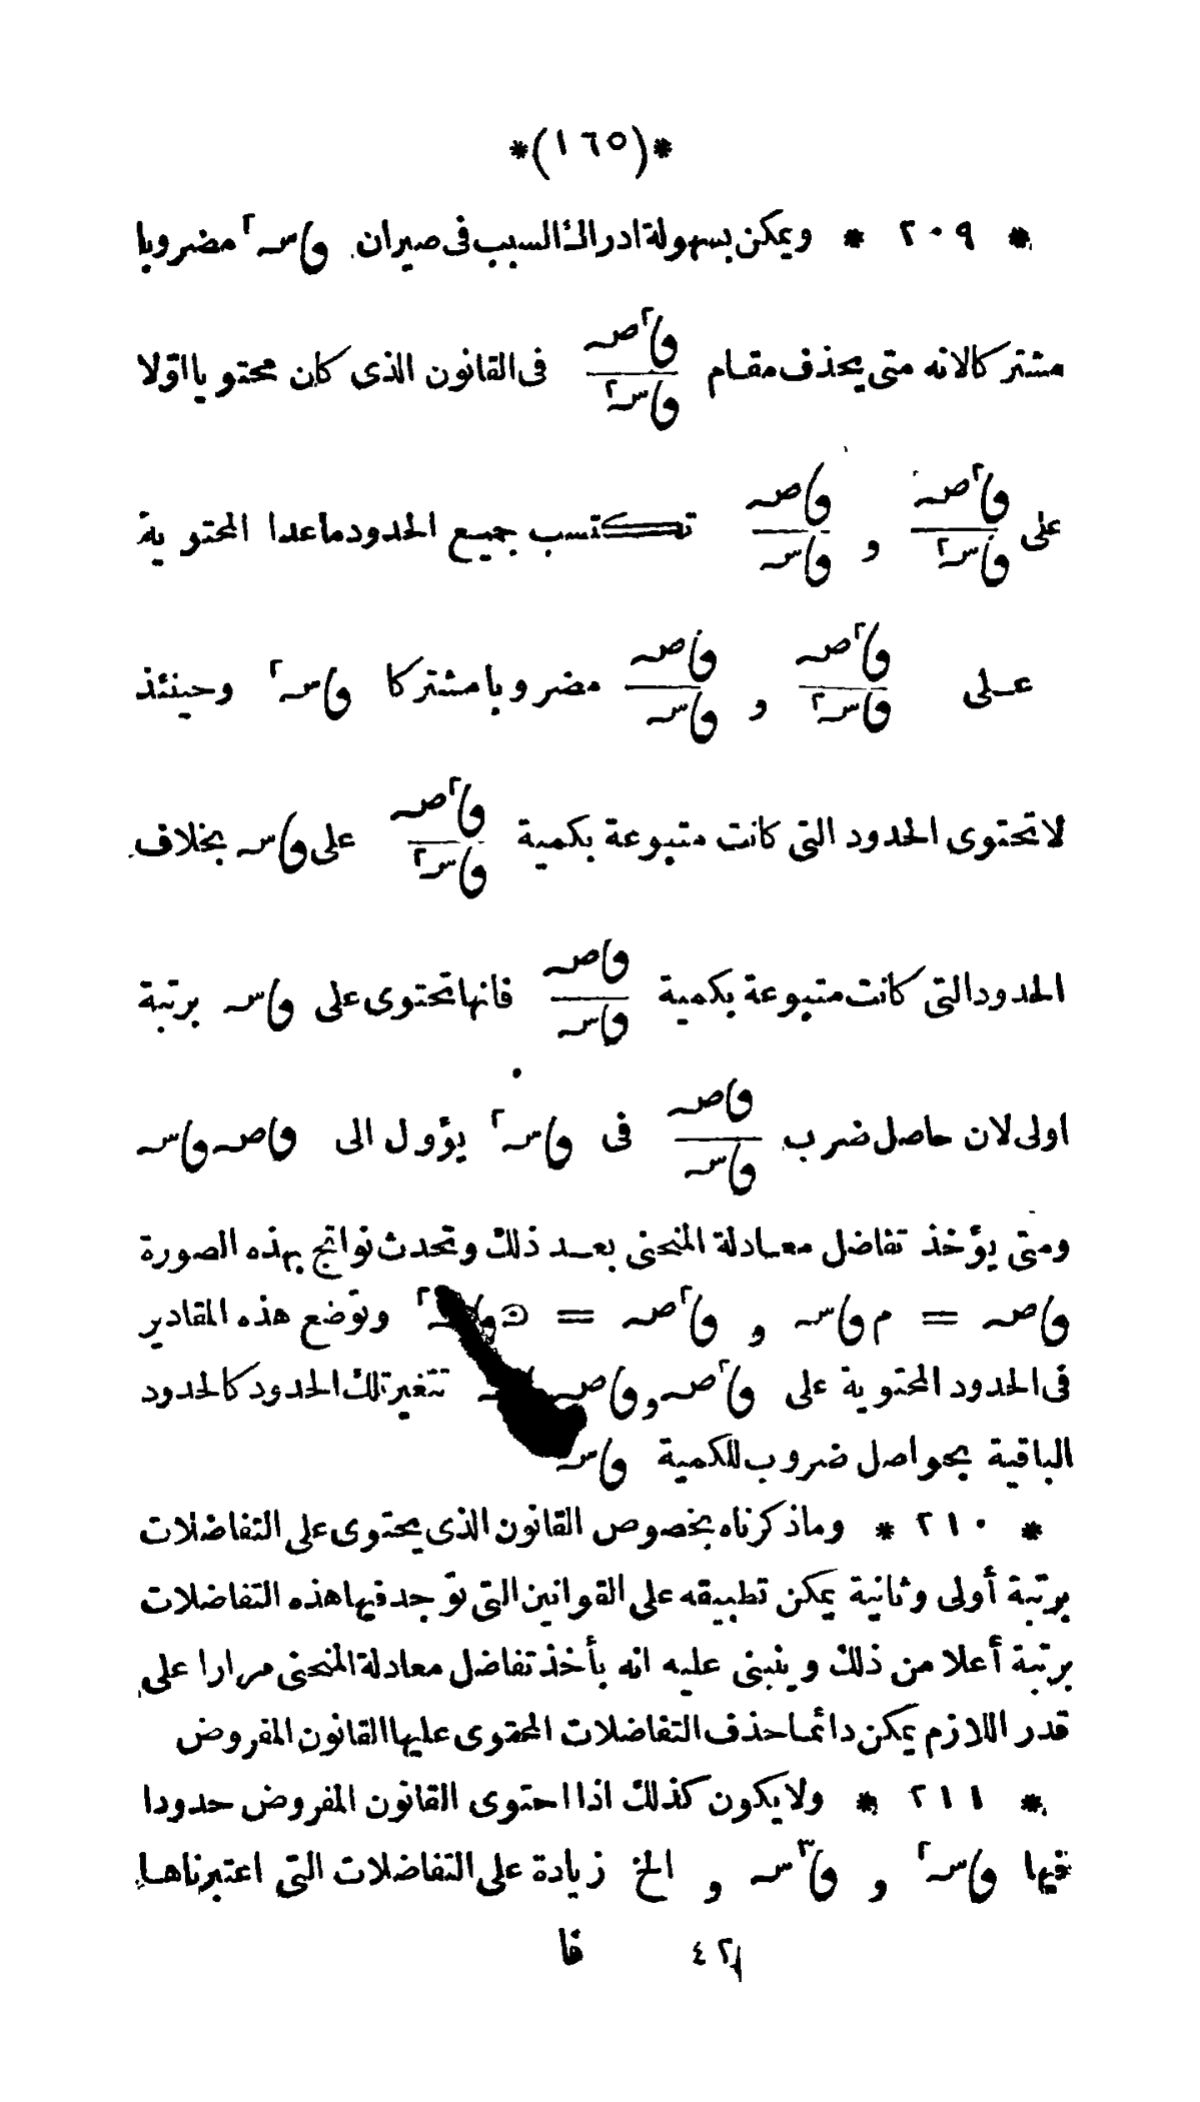 *(١٦٥)*
* ٢٠٩ * ويمكن بسهولة ادراك السبب فى صيران ‎ﻭاسـ٢ مضروبا
مشتركا لانه متى يحذف مقام ‎ﻭا٢صـ / ﻭاسـ٢ فى القانون الذى كان محتويا اوّلا
على ‎ﻭا٢صـ / ﻭاسـ٢ و ﻭاصـ / ﻭاسـ تكتسب جميع الحدود ماعدا المحتوية
على ‎ﻭا٢صـ / ﻭاسـ٢ و ﻭاصـ / ﻭاسـ مضروبا مشتركا ﻭاسـ٢ وحينئذ
لا تحتوى الحدود التى كانت متبوعة بكمية ‎ﻭا٢صـ / ﻭاسـ٢ على ﻭاسـ بخلاف
الحدود التى كانت متبوعة بكمية ‎ﻭاصـ / ﻭاسـ فانها تحتوى على ﻭاسـ برتبة
اولى لان حاصل ضرب ‎ﻭاصـ / ﻭاسـ فى ﻭاسـ٢ يؤول الى ﻭاصـ ﻭاسـ
ومتى يؤخذ تفاضل معادلة المنحنى بعد ذلك وتحدث نواتج بهذه الصورة
ﻭاصـ = م ﻭاسـ و ﻭا٢صـ = ٢ وتوضع هذه المقادير
فى الحدود المحتوية على ﻭا٢صـ و ﻭاصـ تتغير تلك الحدود كالحدود
الباقية بحواصل ضروب للكمية ﻭاسـ
* ٢١٠ * وماذكرناه بخصوص القانون الذى يحتوى على التفاضلات
برتبة أولى وثانية يمكن تطبيقه على القوانين التى توجد فيها هذه التفاضلات
برتبة أعلا من ذلك وينبنى عليه انه بأخذ تفاضل معادلة المنحنى مرارا على
قدر اللازم يمكن دائما حذف التفاضلات المحتوى عليها القانون المفروض
* ٢١١ * ولا يكون كذلك اذا احتوى القانون المفروض حدودا
فيها ﻭاسـ٢ و ﻭا٣سـ و الخ زيادة على التفاضلات التى اعتبرناها
٤٢ فا